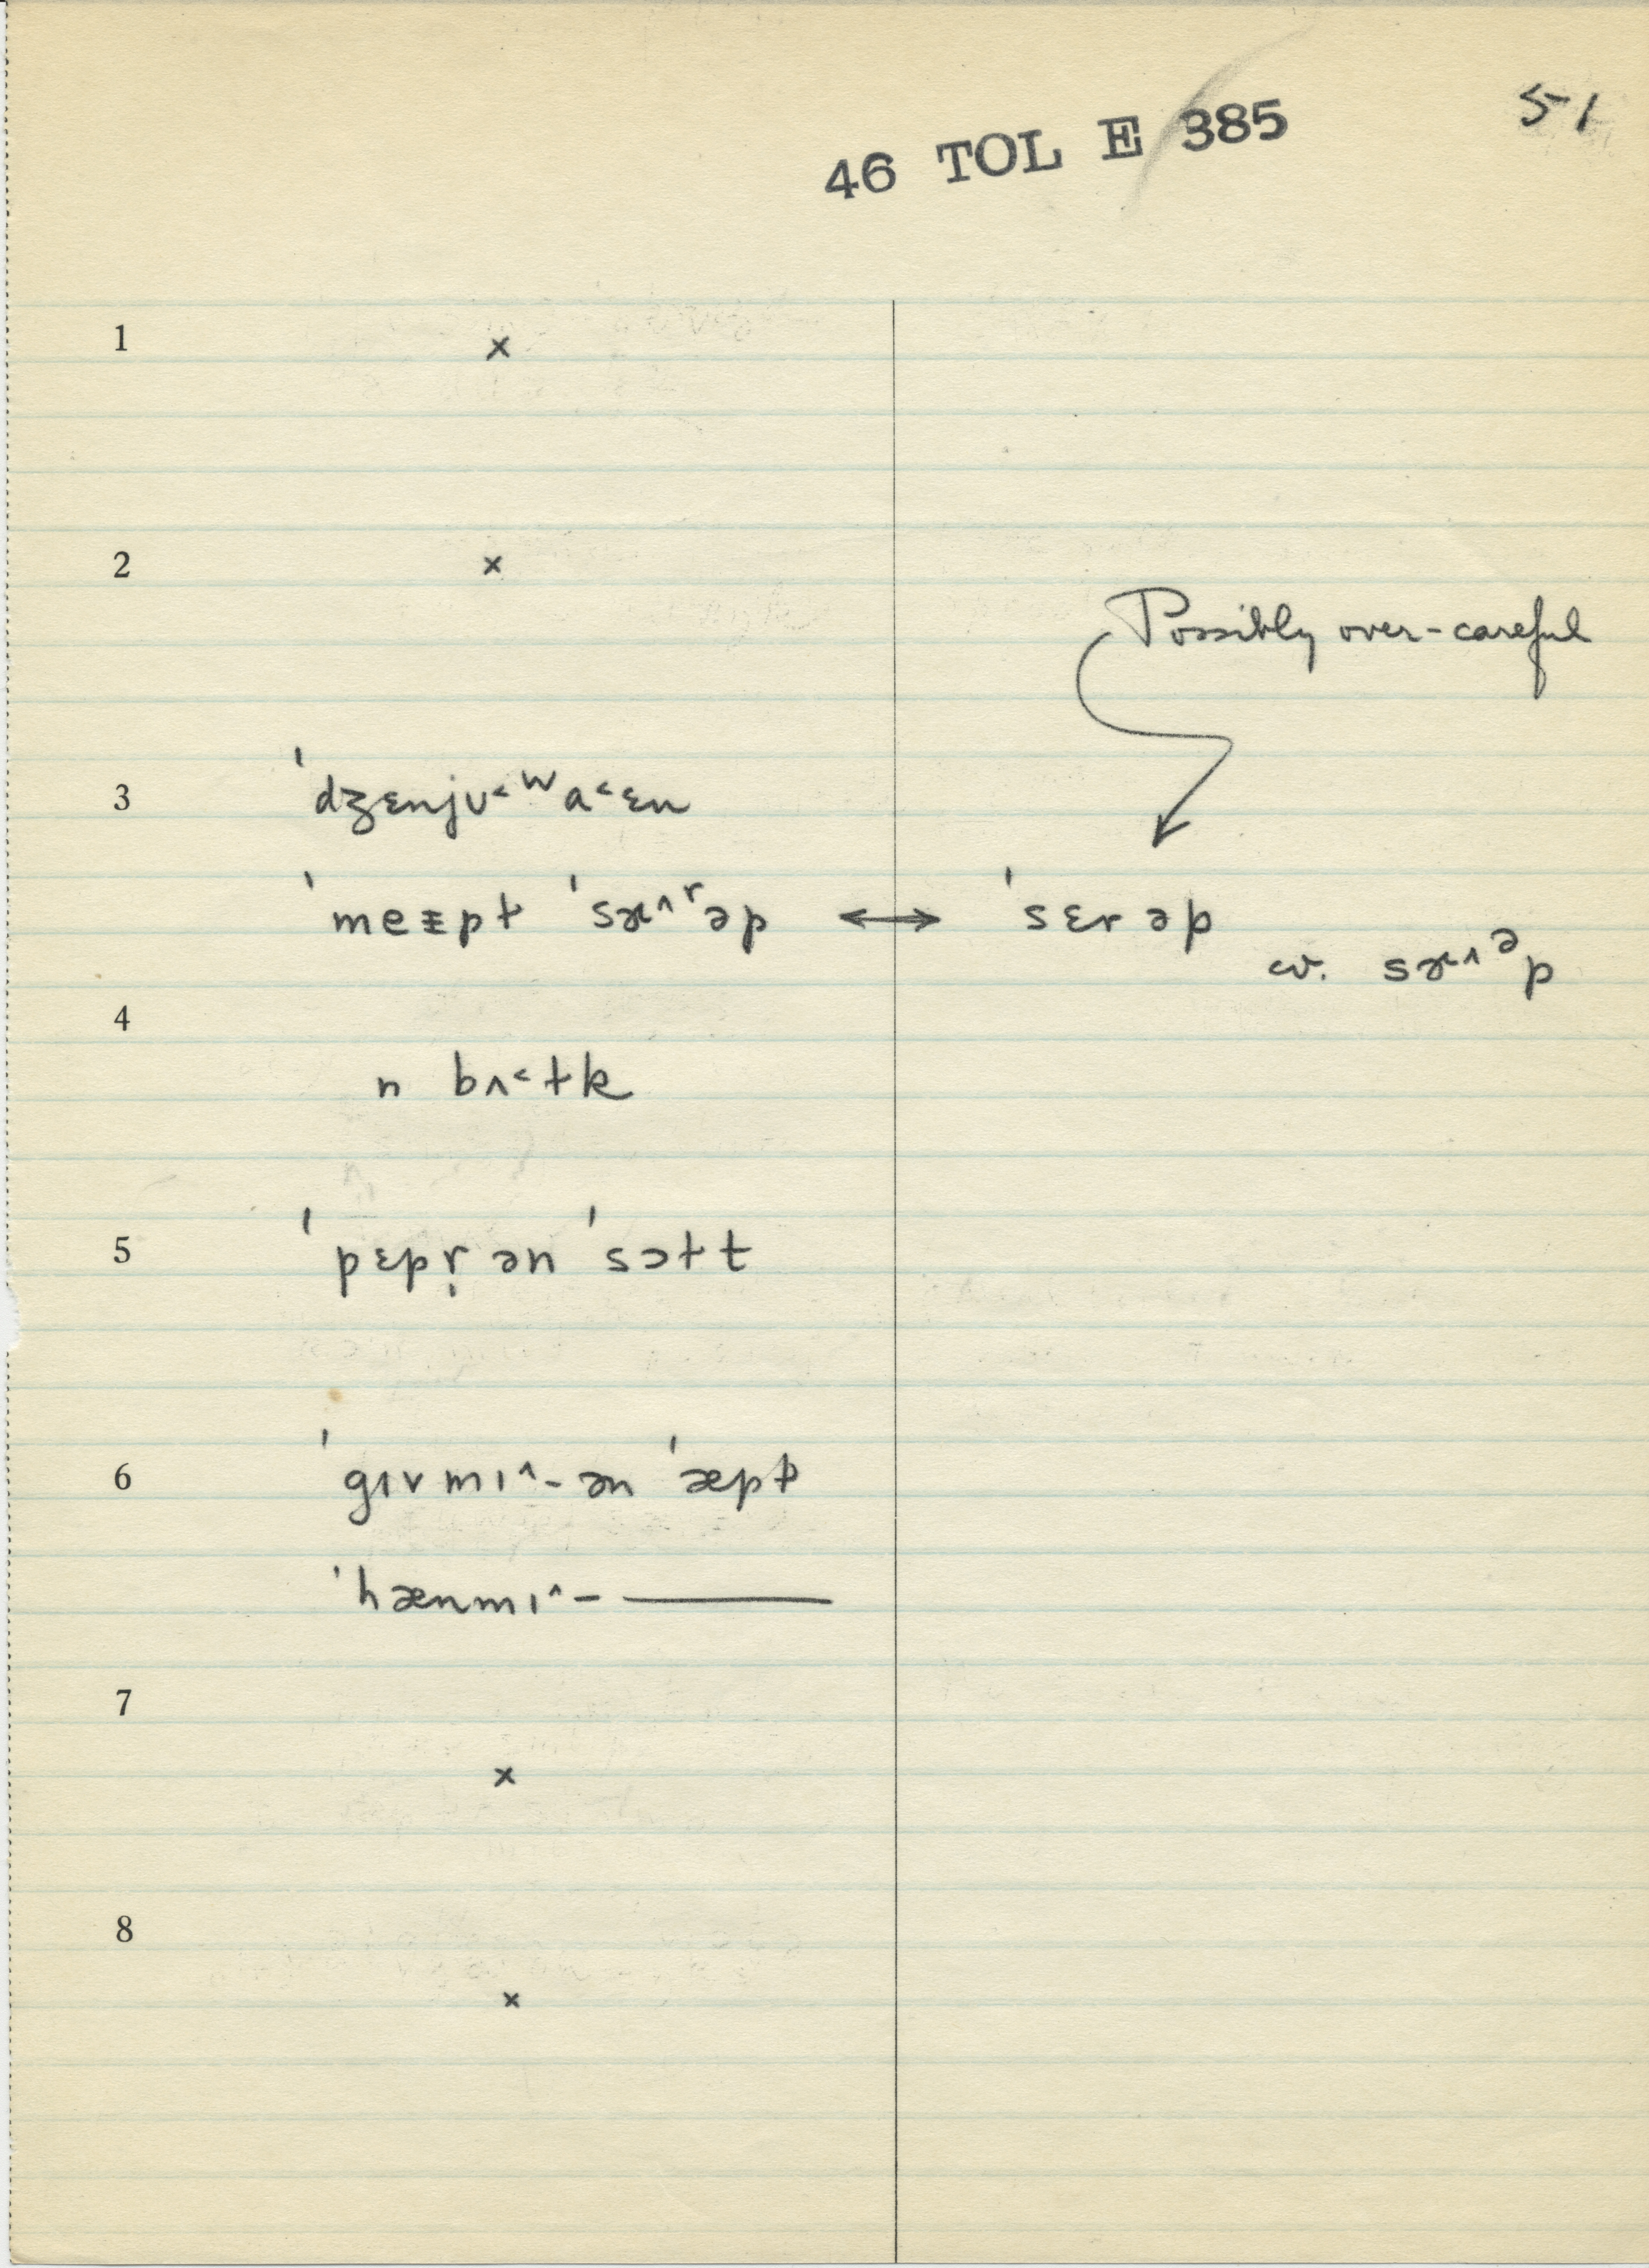 46 TOL E 385
51
1 ×
2 ×
Possibly over-careful
3 ˈdʒɛnjʊ˂ʷa˂ɛn
ˈmeᵻpɫ ˈsæ^ʳəp ↔ ˈsɛrəp
cv. sæ^ᵊp
4
n bʌ˂ɫk
5 ˈpɛpr̩ ən ˈsɔɫt
6 ˈgɪvmɪ^- ən ˈæpɫ
ˈhænmɪ^- ———
7
×
8
×